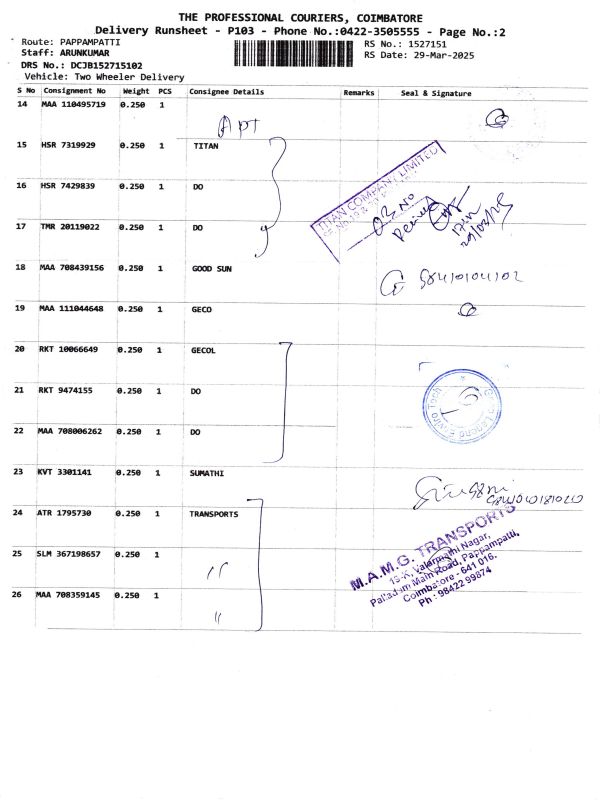 THE PROFESSIONAL COURIERS, COIMBATORE
Delivery Runsheet - P103 - Phone No.:0422-3505555 - Page No.:2
Route: PAPPAMPATTI
RS No.: 1527151
Staff: ARUNKUMAR
RS Date: 29-Mar-2025
DRS No.: DCJB152715102
Vehicle: Two Wheeler Delivery
S No Consignment No Weight PCS Consignee Details Remarks Seal & Signature
14 MAA 110495719 0.250 1
APT
15 HSR 7319929 0.250 1 TITAN
TITAN COMPANY LIMITED
16 HSR 7429839 0.250 1 DO
17 TMR 20119022 0.250 1 DO
29/03/25
18 MAA 708439156 0.250 1 GOOD SUN
19 MAA 111044648 0.250 1 GECO
20 RKT 10066649 0.250 1 GECOL
21 RKT 9474155 0.250 1 DO
22 MAA 708006262 0.250 1 DO
23 KVT 3301141 0.250 1 SUMATHI
24 ATR 1795730 0.250 1 TRANSPORTS
25 SLM 367198657 0.250 1
"
26 MAA 708359145 0.250 1
"
M.A.M.G. TRANSPORTS
Valarmathi Nagar,
Palladam Main Road, Pappampatti,
Coimbatore - 641 016.
Ph : 98422 99874